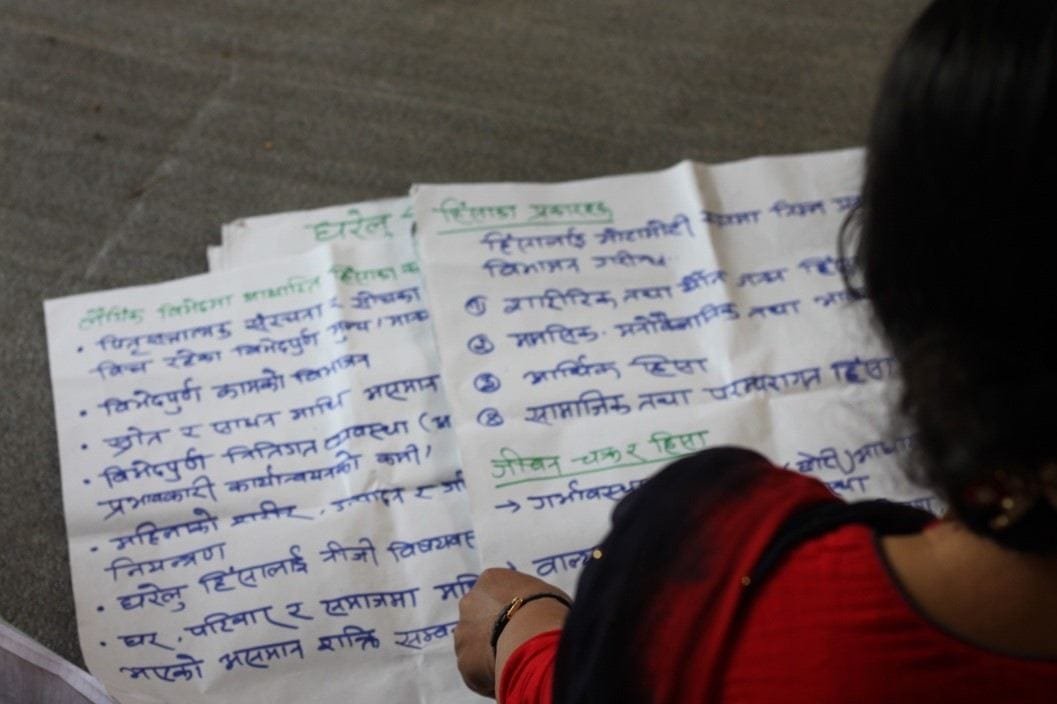 घरेलु
लैंगिक विभेदमा आधारित हिंसाका
• पितृसत्तात्मक संरचना र सोचका
विच रहेका विभेदपुर्ण मुल्य / मान्य
• विभेदपुर्ण कामको विभाजन
• स्रोत र साधन माथि असमान
• विभेदपुर्ण नितिगत व्यवस्था (
प्रभावकारी कार्यान्वयनको कमी)
• महिनाको शरीर, उत्पादन र
नियन्त्रण
• घरेलु हिंसालाई नीजी विषयवस्
• घर, परिवार र समाजमा
भएको असमान शक्ति सम्ब
हिंसाका प्रकारहरु
हिंसालाई मोटामोटी रुपमा निम्न
विभाजन गरीन्छ
① शारीरिक तथा यौन जन्य
② मानसिक. मनोवैज्ञानिक तथा
③ आर्थिक हिंसा
④ सामाजिक तथा परम्परागत हिंसा
जीवन चक्र र हिंसा
→ गर्भावस्था